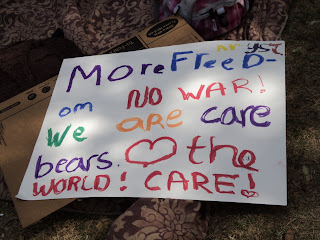 More FreeD-
om NO WAR!
We are care
bears. the
WORLD! CARE!